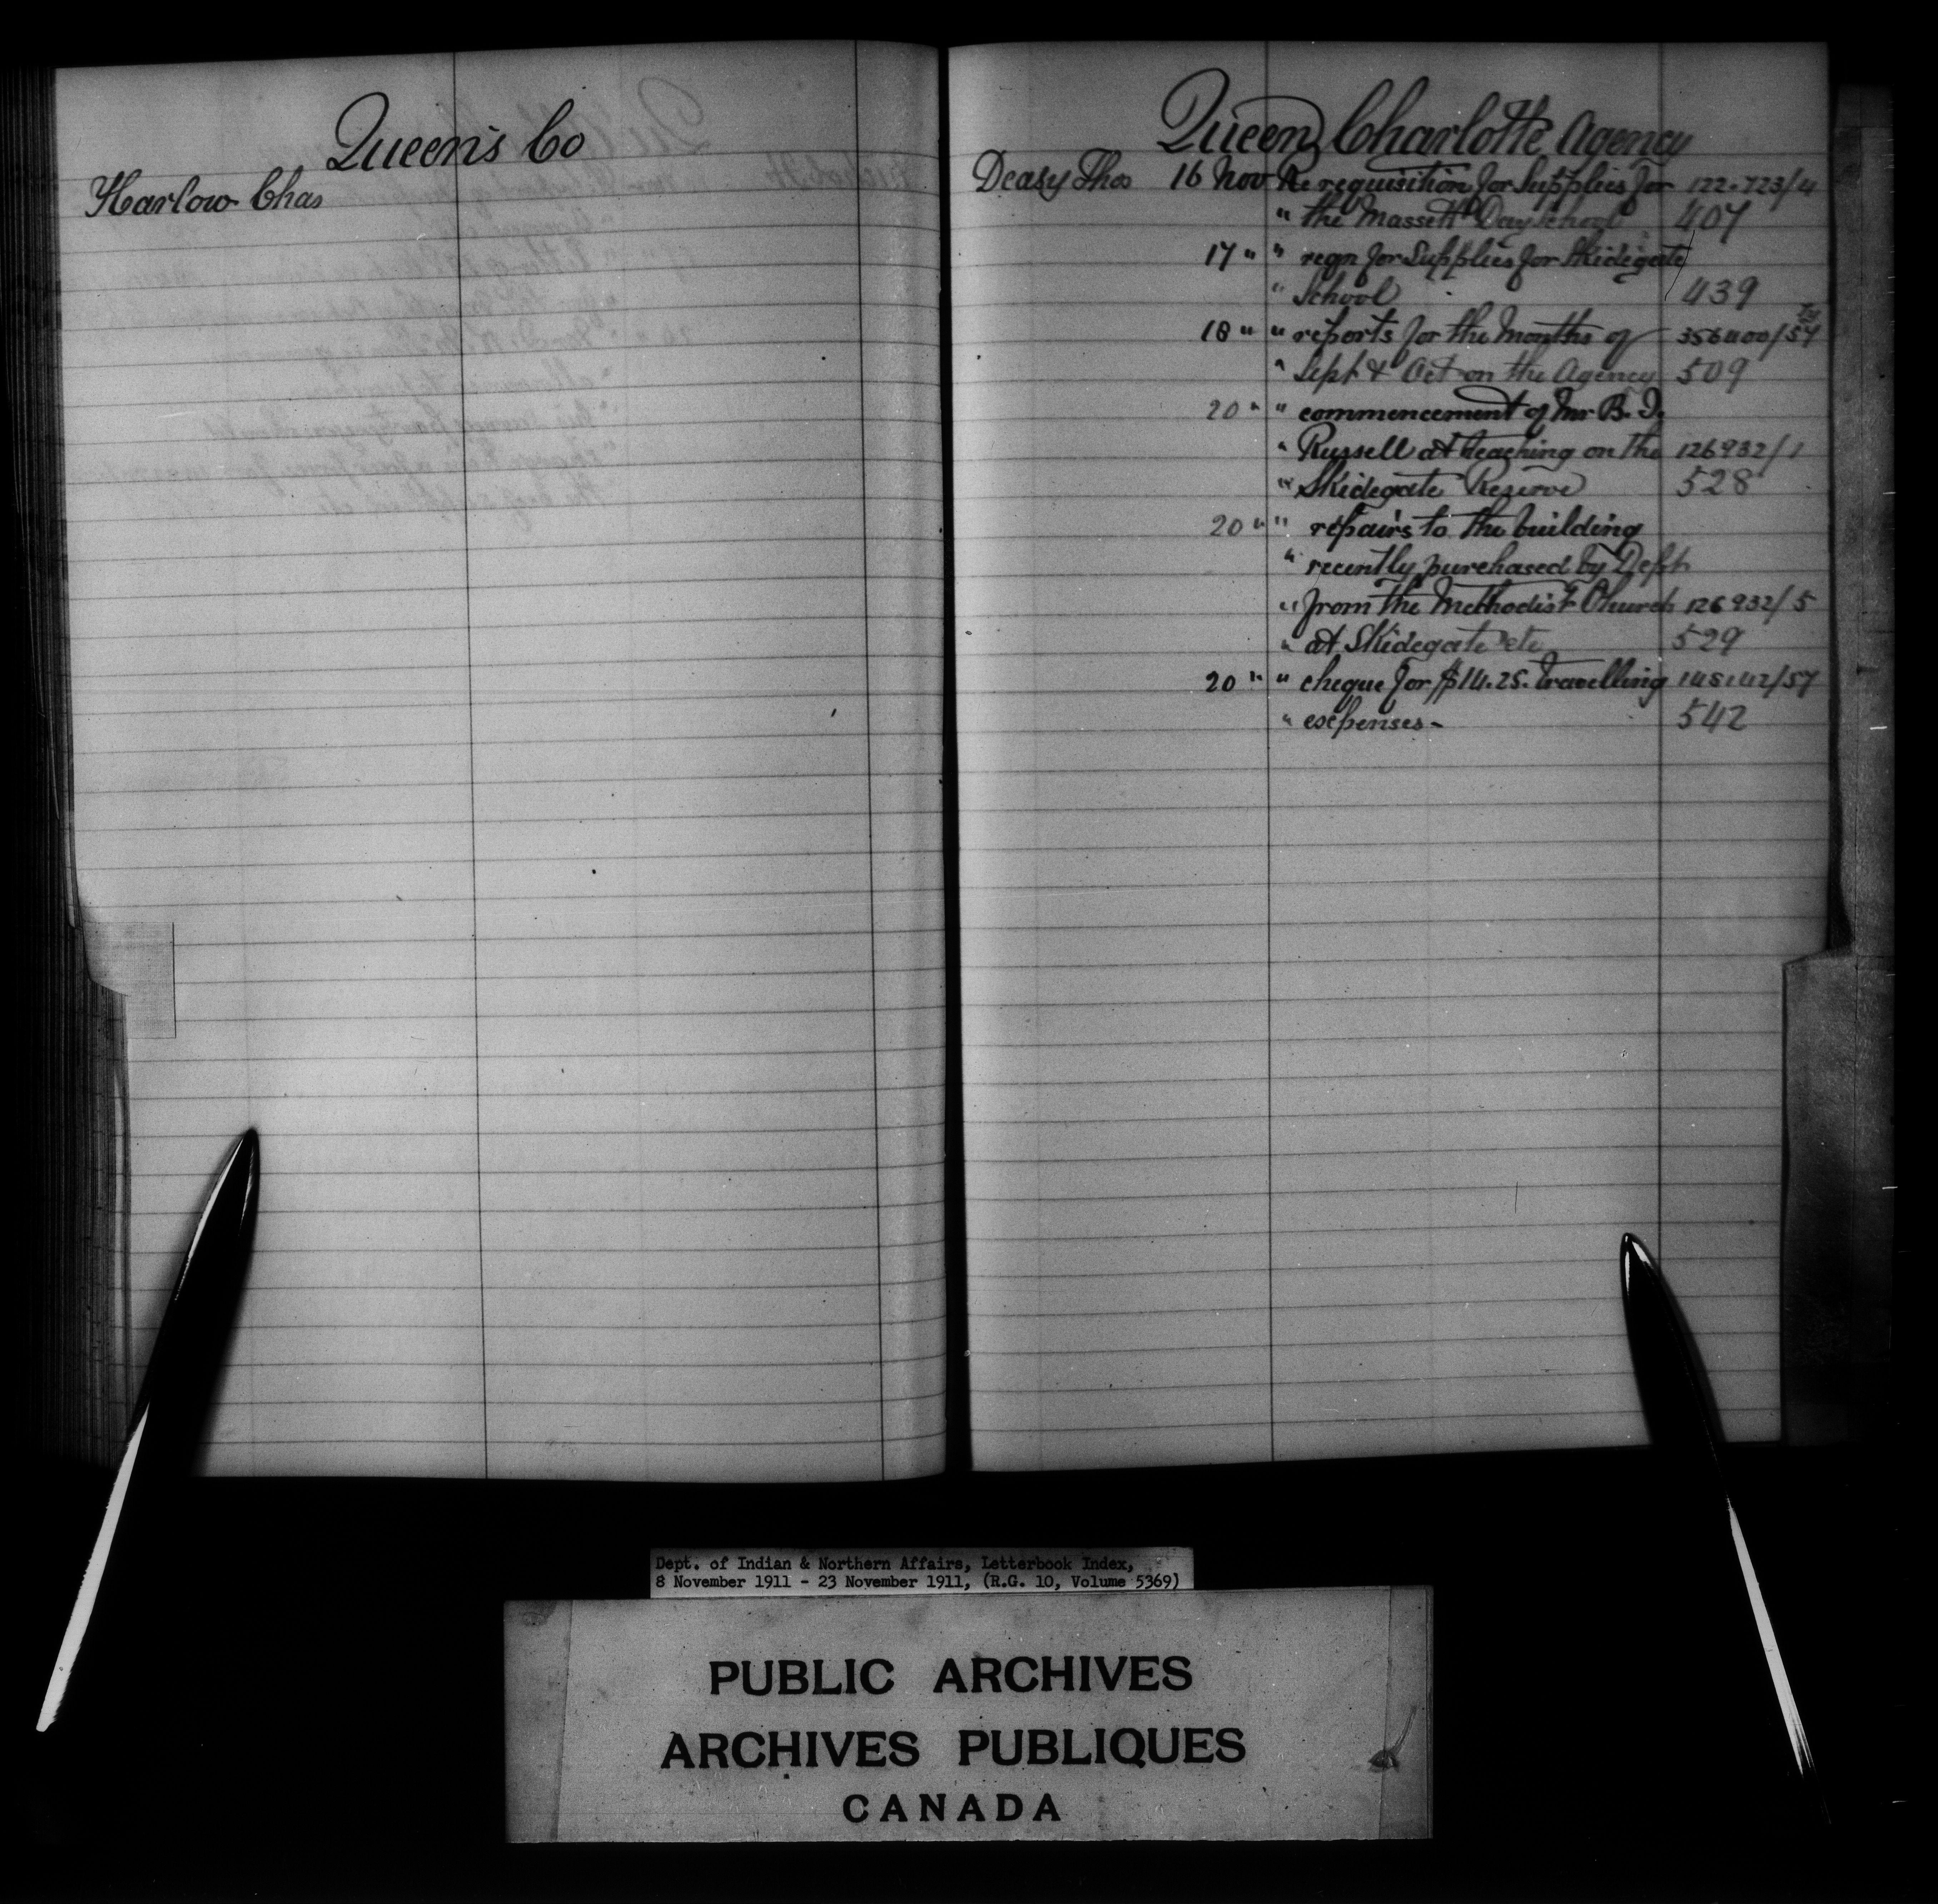 Queen's Co
Harlow Chas
Queen Charlotte Agency
Deasy Thos 16 Nov Re requisition for Supplies for 122.723/4
" the Massett Day School 407
17 " " reqn for Supplies for Skidegate
" School 439
18 " " reports for the Months of 356400/57
" Sept & Oct on the Agency 509
20 " " commencement of Mr B. I.
" Russell at teaching on the 126932/1
" Skidegate Reserve 528
20 " " repairs to the building
" recently purchased by Dept
" from the Methodist Church 126932/5
" at Skidegate etc 529
20 " " cheque for $14.25. travelling 145142/57
" expenses- 542
Dept. of Indian & Northern Affairs, Letterbook Index,
8 November 1911 - 23 November 1911, (R.G. 10, Volume 5369)
PUBLIC ARCHIVES
ARCHIVES PUBLIQUES
CANADA